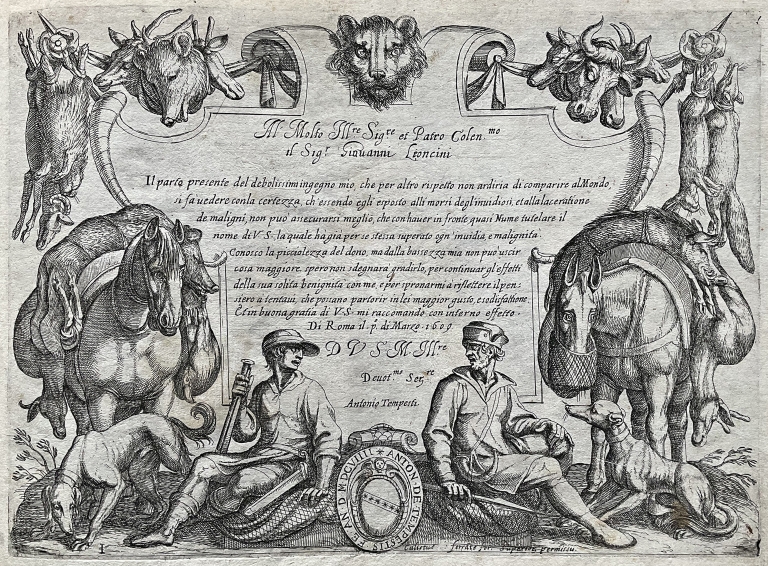 Al Molto Ill.re Sig.re et Patro Colen.mo
il Sig.r Giouanni Leoncini
Il parto presente del debolissimingegno mio, che per altro rispetto non ardiria di comparire al Mondo,
si fa uedere con la certezza, ch'essendo egli esposto alli morsi degl'inuidiosi, et alla laceratione
de maligni, non può assecurarsi meglio, che con hauer in fronte quasi Nume tutelare il
nome di V.S. la quale ha già per se stessa superato ogn'inuidia e malignità.
Conosco la picciolezza del dono, ma dalla bassezza mia non può uscir
cosa maggiore. spero non sdegnarà gradirlo, per continuar gl'effetti
della sua solita benignità con me, e per spronarmi a riflettere il pen-
siero a tentaui, che possano partorir in lei maggior gusto, e sodisfattione.
Et in buona gratia di V.S. mi raccomando con interno effetto.
Di Roma il p.o di Marzo. 1609
D V S M. Ill.re
Deuot.mo Ser.re
Antonio Tempesti.
ANTON. DE TEMPESTIS FE. AN. D. MDCVIIII
1
Superior permissu.